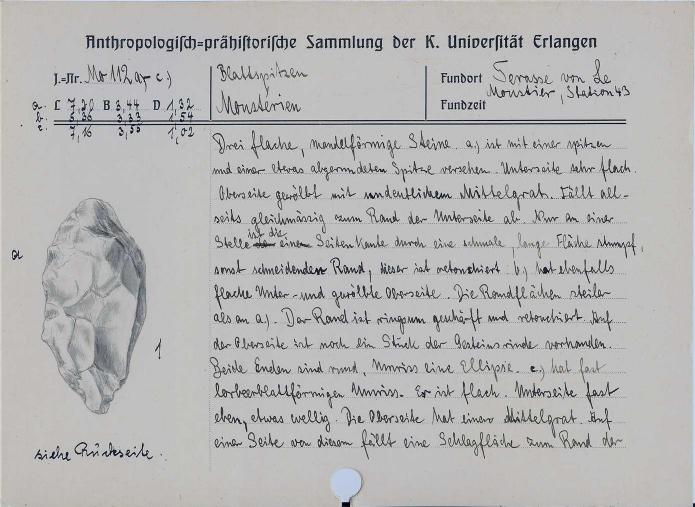 Anthropologisch=prähistorische Sammlung der K. Universität Erlangen
J.=Nr. Mo 112 a, - c,)
Blattspitzen
Moustérien
Fundort Terasse von Le
Moustier, Station 43
Fundzeit
a. L 7,20 B 3,44 D 1,32
b. 6,36 3,33 1,54
c. 7,16 3,55 1,02
Drei flache, mandelförmige Steine. a.) ist mit einer spitzen
und einer etwas abgerundeten Spitze versehen. Unterseite sehr flach.
Oberseite gewölbt mit undeutlichem Mittelgrat. Fällt all-
seits gleichmässig zum Rand der Unterseite ab. Nur an einer
Stelle ist die eine Seitenkante durch eine schmale, lange Fläche stumpf,
sonst schneidenden Rand, dieser ist retouchiert. b.) hat ebenfalls
flache Unter- und gewölbte Oberseite. Die Randflächen steiler
als an a.). Der Rand ist ringsum geschärft und retouchiert. Auf
der Oberseite ist noch ein Stück der Gesteinsrinde vorhanden.
Beide Enden sind rund, Umriss eine Ellipse. c.) hat fast
lorbeerblattförmigen Umriss. Er ist flach. Unterseite fast
eben, etwas wellig. Die Oberseite hat einen Mittelgrat. Auf
einer Seite von diesem fällt eine Schlagfläche zum Rand der
a
1
siehe Rückseite.